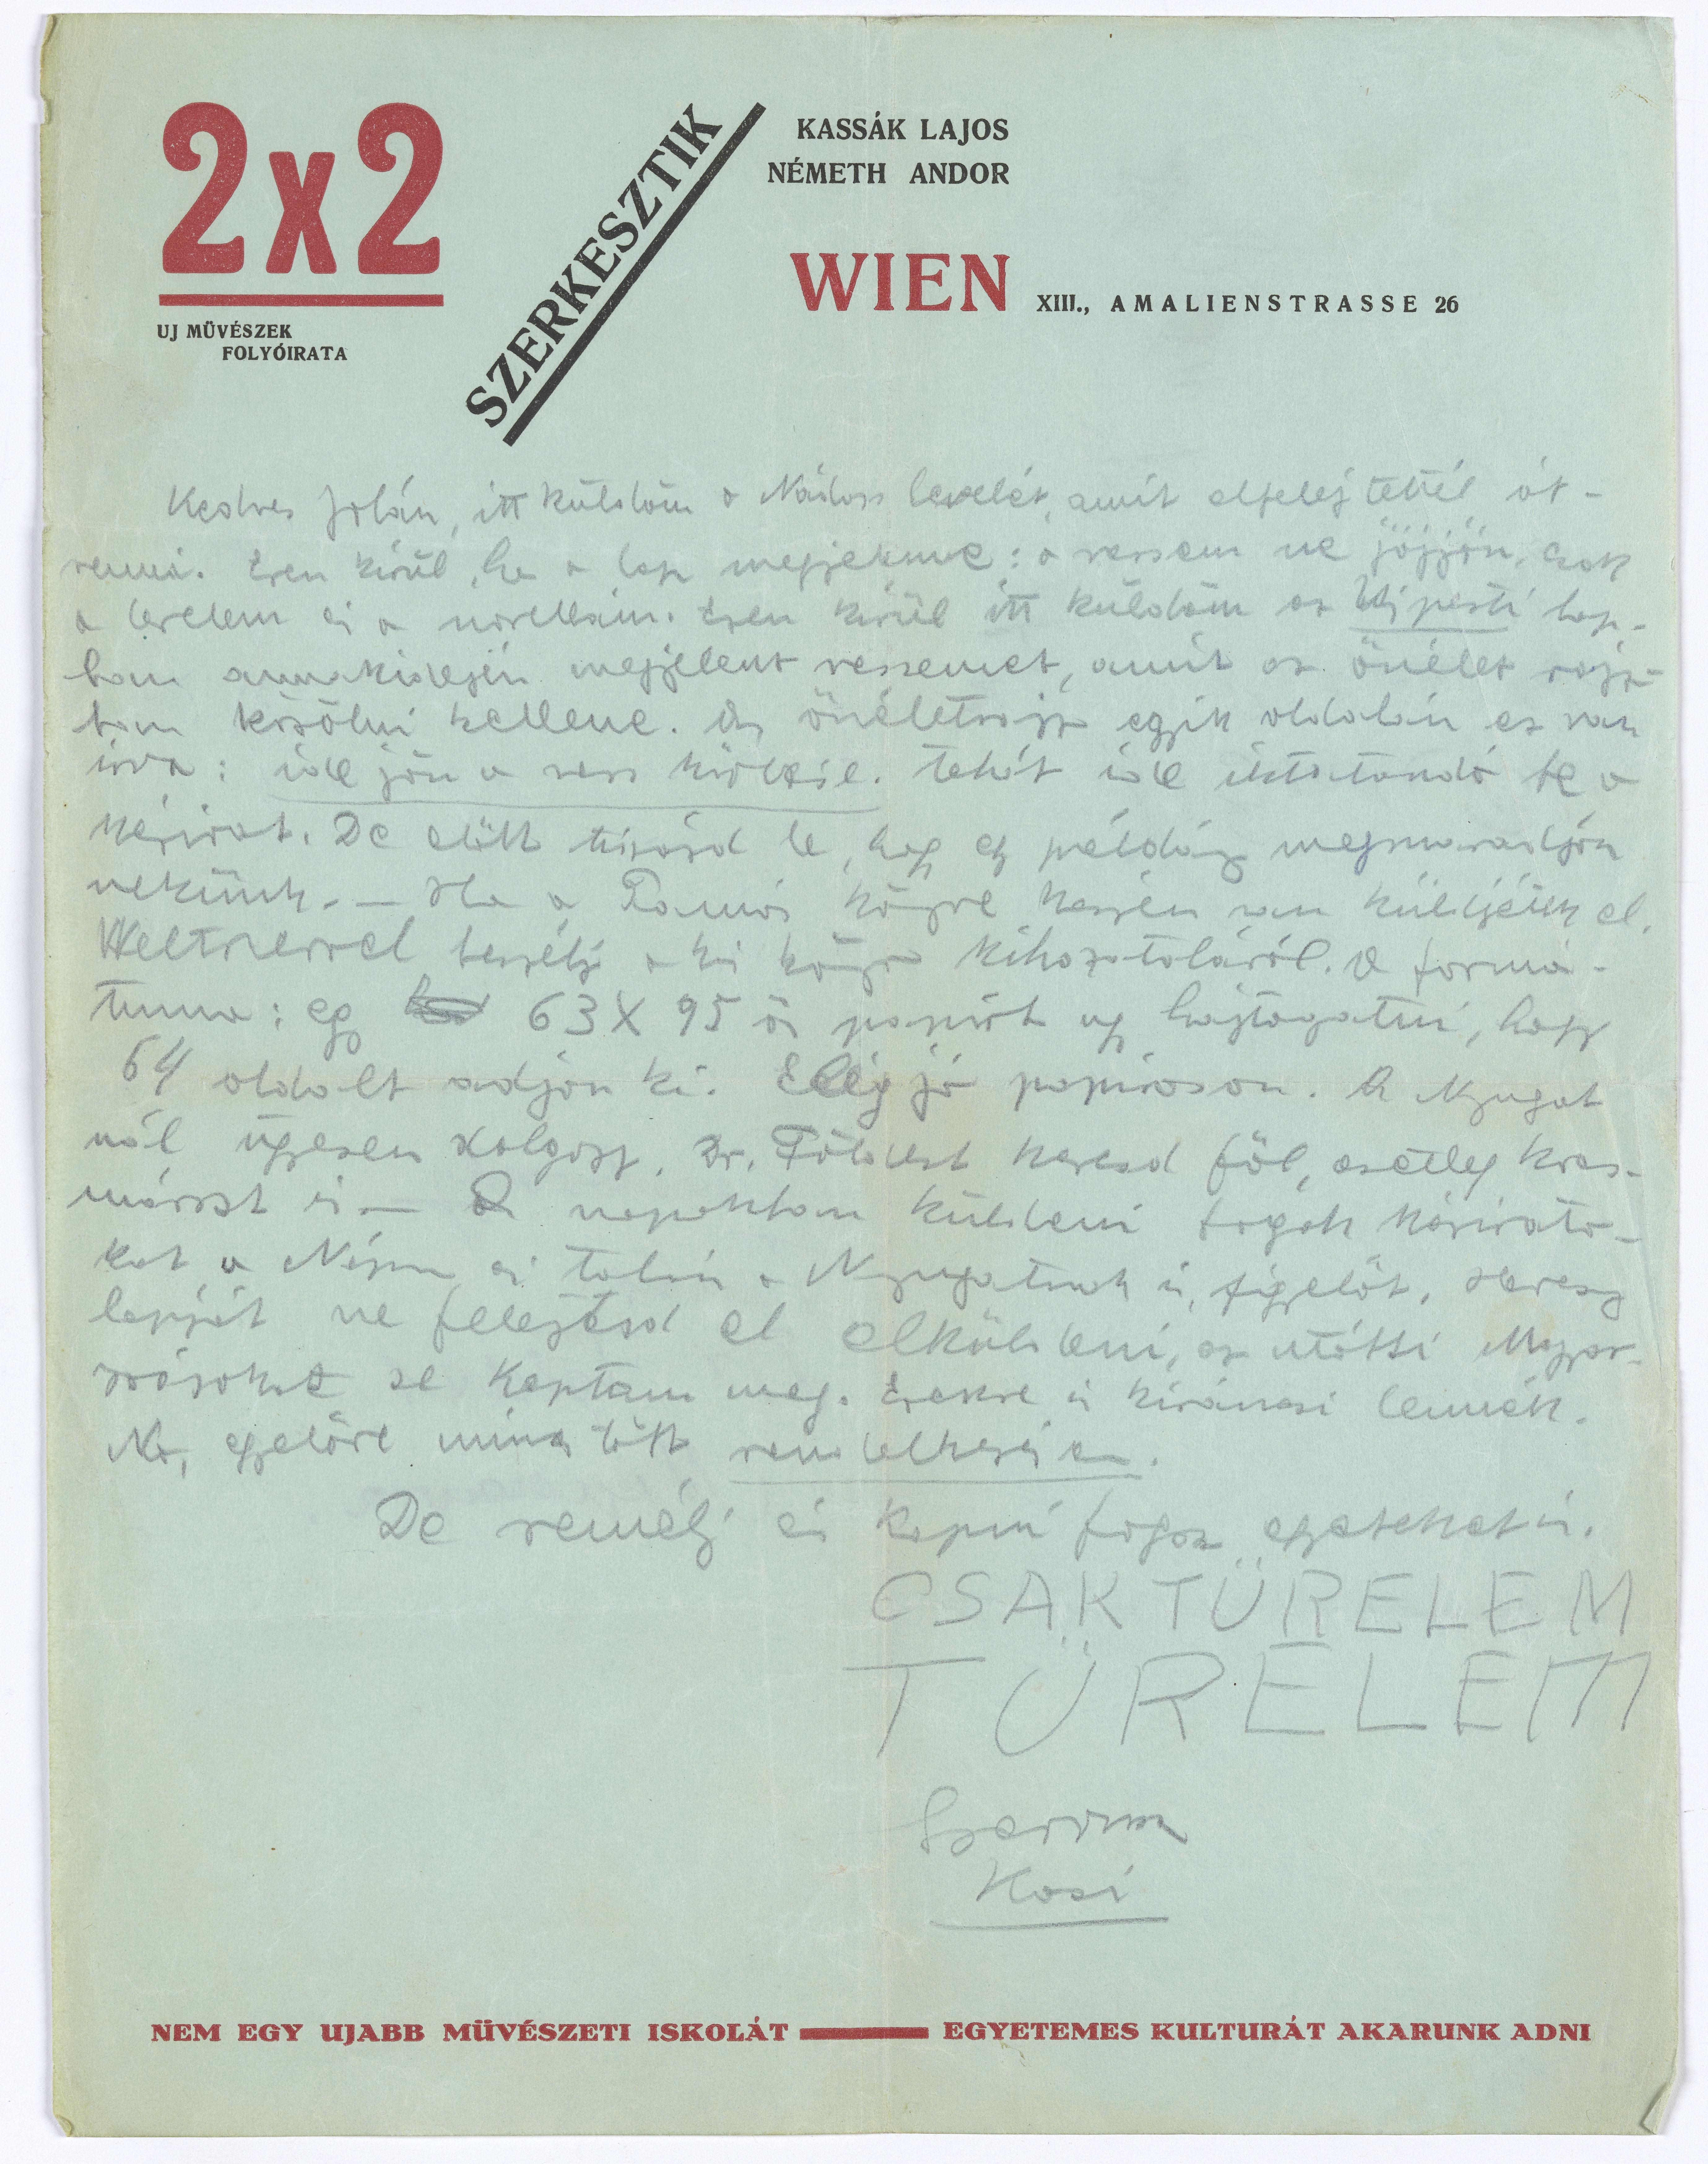 2x2
UJ MÜVÉSZEK
FOLYÓIRATA
SZERKESZTIK
KASSÁK LAJOS
NÉMETH ANDOR
WIEN XIII., AMALIENSTRASSE 26
Kedves Jolán, itt küldöm a Nádass levelét, amit elfelejtettél át-
venni. Ezen kivül, ha a lap megjelenne: a versem ne jöjjön, csak
a levelem és a novellám. Ezen kivül itt küldöm az Ujpesti lap-
ban annakidején megjelent versemet, amit az önéletrajz-
ban közölni kellene. Az önéletrajz egyik oldalán ez van
irva: ide jön a vers . tehát ide iktatandó be a
kézirat. De előtt tisázd le, hogy egy példány megmaradjon
nekünk. — Ha a Tamás könyve készen van küldjétek el.
Weltnerrel beszélj a kis könyv kihozataláról. A formá-
tuma: egy 63X95 ös papirt ugy hajtogatni, hogy
64 oldalt adjon ki. Elég jó papiroson. A Nyugat
nál ügyesen dolgozz. Dr. Földest keresd föl, esetleg Kras-
is — A napokban küldeni fogok kézirato-
kat a Népsz. és talán a Nyugatnak is, figyelőt.
lapját ne felejtsd el elküldeni, az utóbbi Magyar-
se kaptam meg. Ezekre is kiváncsi lennék.
No, egyelőre nincs több rendelkezésem.
De remélj és kapni fogsz egyebeket is.
CSAK TÜRELEM
TÜRELEM
Szervusz
Kasi
NEM EGY UJABB MÜVÉSZETI ISKOLÁT — EGYETEMES KULTURÁT AKARUNK ADNI